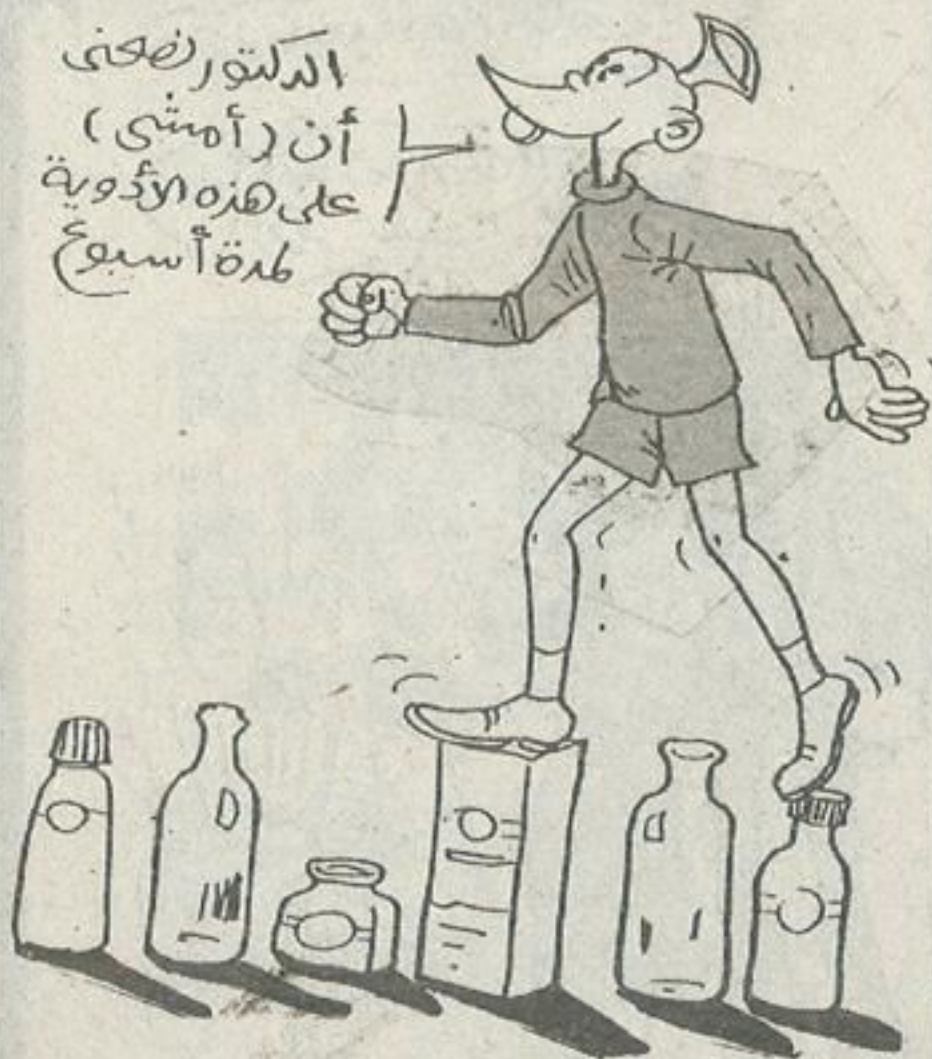 الدكتور نصحنى
أن (أمشى)
على هذه الأدوية
لمدة أسبوع